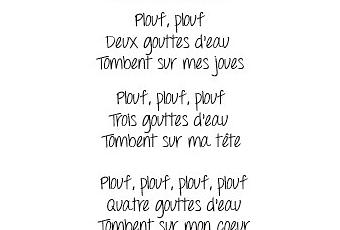 Plouf, plouf
Deux gouttes d'eau
Tombent sur mes joues
Plouf, plouf, plouf
Trois gouttes d'eau
Tombent sur ma tête
Plouf, plouf, plouf, plouf
Quatre gouttes d'eau
Tombent sur mon coeur